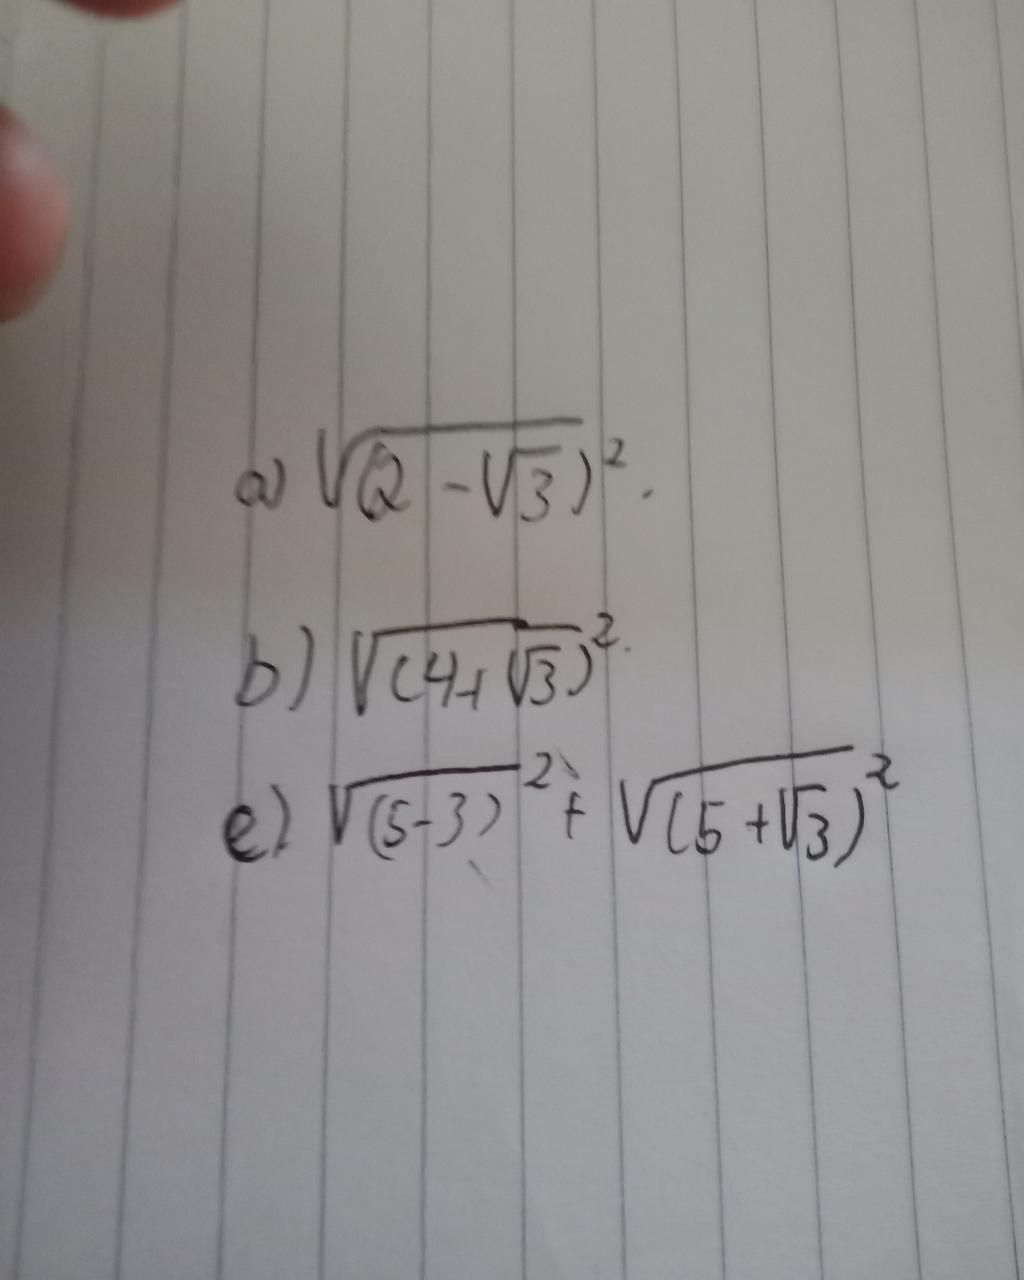 a) √(2 - √3)².
b) √(4+ √3)².
e) √(5-3)² + √(5 + √3)²